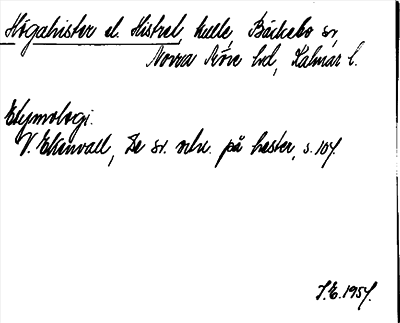 Högahister el. Histrel, kulle, Bäckebo sn,
Norra Möre hd, Kalmar l.
Etymologi:
V. Ekenvall, De sv. ortn. på hester, s. 107.
S.E. 1957.